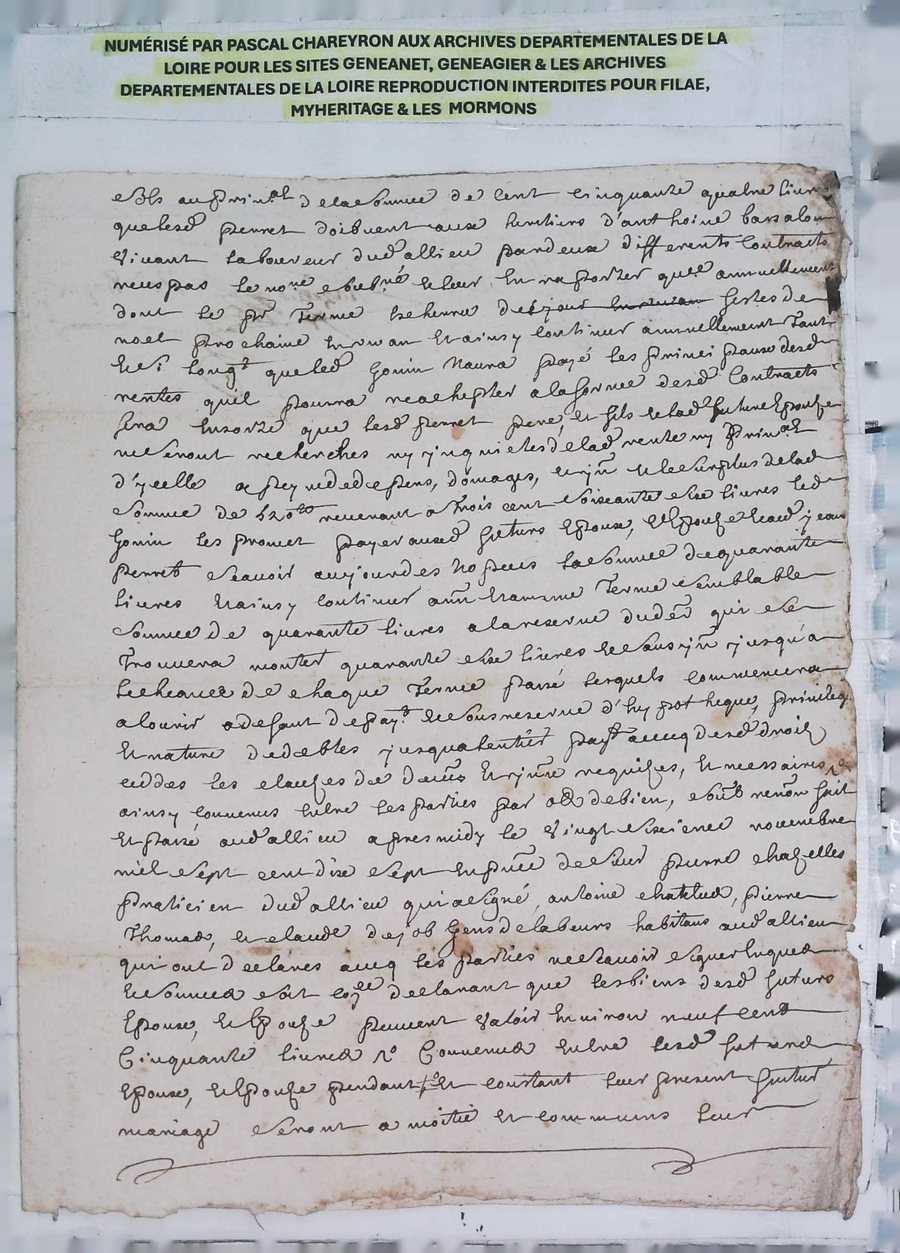 NUMÉRISÉ PAR PASCAL CHAREYRON AUX ARCHIVES DEPARTEMENTALES DE LA
LOIRE POUR LES SITES GENEANET, GENEAGIER & LES ARCHIVES
DEPARTEMENTALES DE LA LOIRE REPRODUCTION INTERDITES POUR FILAE,
MYHERITAGE & LES MORMONS
au prinal de la somme de cent cinquante quatre livres
que lesd perret doibvent aux heritiers d'anthoine barralon
vivant laboureur dud allieu par deux differents contracts
receus par le nore et leur en raporter quee annuellement
dont le pr terme jour festes de
noel prochaine et ainsy continuer annuellement tant
et sy longt que led gonin naura payé les princi paux desd
rentes quil pourra reachepter a la forme desd contracts
sera ensorte que lesd perret pere, et fils et lad future epouse
ne seront recherches ny inquietes de lad rente ny prinal
d'ycelle a peyne de depens, domages, et le surplus de lad
somme de 520ll revenant a trois cent soixante six livres led
gonin les promet payer ausd futurs epoux, et epouse et aud jean
perret scavoir au jour des nopces la somme de quarante
livres et ainsy continuer terme semblable
somme de quarante livres a la reserve du der qui se
trouvera monter quarante six livres jusqu'a
de chaque terme passé lesquels commencera
a courir a defaut de payt et sous reserve d'hypotheque, privilege
et nature de debtes jusqu'a lentier payt avecq desd droits
les clauses de requises, et necessaires
ainsy convenus entre les parties par de bien, renon fait
et passé aud allieu apres midy le vingt novembre
mil sept cent dix sept en pnce de sieur pierre chazelles
praticien dud allieu qui a signé, antoine pierre
Thomas, et claude dejob gens de labeurs habitans aud allieu
qui ont declarés avecq les parties ne scavoir signer enquis
et sommes declarant que les biens desd futurs
epoux, et epouse peuvent valoir environ neuf cent
Cinquante livres convenus entre lesd futurs
epoux, et epouse pendant et constant leur present futur
mariage seront a moitié et communs leur